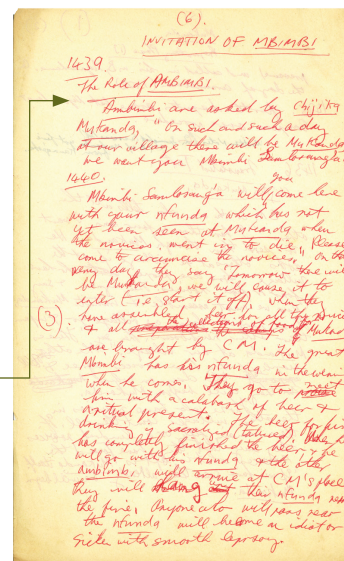 (6).
INVITATION OF MBIMBI
1439.
The Role of AMBIMBI.
Ambimbi are asked by Chijika
Mukanda, "On such and such a day
at our village there will be Mukanda
we want you Mbimbi Sambosang'a.
1440.
you
Mbimbi Sambosang'a will come here
with your nfunda which has not
yet been seen at Mukanda when
the novices went in to die. Please
come to circumcise the novices." On the
day they say "Tomorrow there will
be Mukanda, we will cause it to
enter (i.e. start it off). When they
have assembled beer for all the
(3)
& all the of food Mukanda
are brought by C.M. The great
Mbimbi has his nfunda in the
when he comes. They go to meet
him with a calabash of beer &
a ritual present. The beer for
drinking is sacralized (tabued). When he
has completely finished the beer, he
will go with his nfunda & the other
ambimbi will arrive at C.M.'s place
they will hang their nfunda
the fire. Anyone who will pass near
the nfunda will become an idiot or
sicken with smooth leprosy.